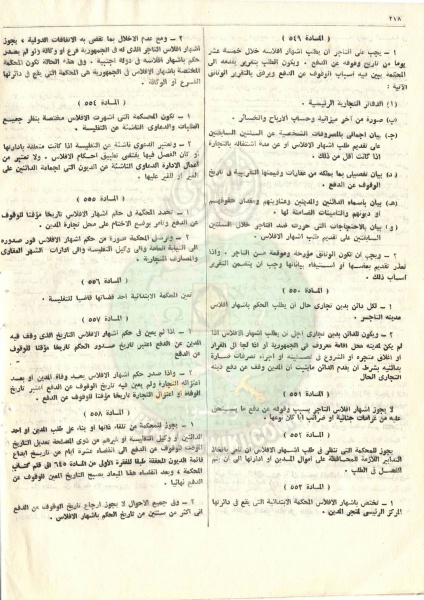 ٢١٨
( المادة ٥٤٩ )
١ – يجب على التاجر ان يطلب اشهار افلاسه خلال خمسة عشر
يوما من تاريخ وقوفه عن الدفع . ويكون الطلب بتقرير يقدمه الى
المحكمة يبين فيه اسباب الوقوف عن الدفع ويرفق بالتقرير الوثائق
الآتية :
(١) الدفاتر التجارية الرئيسية .
(ب) صورة من آخر ميزانية وحساب الأرباح والخسائر .
(جـ) بيان اجمالي بالمصروفات الشخصية عن السنتين السابقتين
على تقديم طلب اشهار الافلاس او عن مدة اشتغاله بالتجارة
اذا كانت اقل من ذلك .
(د) بيان تفصيلي بما يملكه من عقارات وقيمتها التقريبية في تاريخ
الوقوف عن الدفع .
(هـ) بيان باسماء الدائنين والمدينين وعناوينهم ومقدار حقوقهم
او ديونهم والتأمينات الضامنة لها .
(و) بيان بالاحتجاجات التي حررت ضد التاجر خلال السنتين
السابقتين على تقديم طلب اشهار الافلاس .
٢ – ويجب ان تكون الوثائق مؤرخة وموقعة من التاجر . واذا
تعذر تقديم بعضها او استيفاء بياناتها وجب ان يتضمن التقرير
اسباب ذلك .
( المادة ٥٥٠ )
١ – لكل دائن بدين تجاري حال ان يطلب الحكم باشهار افلاس
مدينه التاجر .
٢ – ويكون للدائن بدين تجاري آجل ان يطلب اشهار الافلاس اذا
لم يكن لمدينه محل اقامة معروف في الجمهورية او اذا لجأ الى الفرار
او اغلاق متجره او الشروع في تصفيته او اجراء تصرفات ضارة
بدائنيه بشرط ان يقدم الدائن مايثبت ان المدين وقف عن دفع دينه
التجاري الحال
( المادة ٥٥١ )
لا يجوز اشهار افلاس التاجر بسبب وقوفه عن دفع ما يستحق
عليه من غرامات جنائية او ضرائب ايا كان نوعها .
( المادة ٥٥٢ )
يجوز للمحكمة التي تنظر في طلب اشهار الافلاس ان تأمر باتخاذ
التدابير اللازمة للمحافظة على اموال المدين او ادارتها الى ان يتم
الفصل في الطلب .
( المادة ٥٥٣ )
١ – تختص باشهار الافلاس المحكمة الابتدائية التي يقع في دائرتها
المركز الرئيسي لمتجر المدين .
٢ – ومع عدم الاخلال بما تقضي به الاتفاقات الدولية ، يجوز
اشهار افلاس التاجر الذي له في الجمهورية فرع او وكالة ولو لم يصدر
حكم باشهار افلاسه في دولة اجنبية . وفي هذه الحالة تكون المحكمة
المختصة باشهار الافلاس في الجمهورية هي المحكمة التي يقع في دائرتها
الفرع او الوكالة .
( المادة ٥٥٤ )
١ – تكون المحكمة التي اشهرت الافلاس مختصة بنظر جميع
الطلبات والدعاوى الناشئة عن التفليسة .
٢ – وتعتبر الدعوى ناشئة عن التفليسة اذا كانت متعلقة بادارتها
او كان الفصل فيها يقتضي تطبيق احكام الافلاس . ولا تعتبر من
اعمال الادارة الدعاوى الناشئة عن الديون التي لجماعة الدائنين على
الغير او للغير عليها .
( المادة ٥٥٥ )
١ – تحدد المحكمة في حكم اشهار الافلاس تاريخا مؤقتا للوقوف
عن الدفع وتأمر بوضع الاختام على محل تجارة المدين .
٢ – وترسل المحكمة صورة من حكم اشهار الافلاس فور صدوره
الى النيابة العامة والى وكيل التفليسة والى ادارات الشهر العقاري
والمصارف التجارية .
( المادة ٥٥٦ )
تعين المحكمة الابتدائية احد قضاتها قاضيا للتفليسة .
( المادة ٥٥٧ )
١ – اذا لم يعين في حكم اشهار الافلاس التاريخ الذي وقف فيه
المدين عن الدفع اعتبر تاريخ صدور الحكم تاريخا مؤقتا للوقوف
عن الدفع
٢ – واذا صدر حكم اشهار الافلاس بعد وفاة المدين او بعد
اعتزاله التجارة ولم يعين فيه تاريخ الوقوف عن الدفع اعتبر تاريخ
الوفاة او اعتزال التجارة تاريخا مؤقتا للوقوف عن الدفع .
( المادة ٥٥٨ )
١ – يجوز للمحكمة من تلقاء ذاتها او بناء على طلب المدين او احد
الدائنين او وكيل التفليسة او غيرهم من ذوي المصلحة تعديل التاريخ
المؤقت للوقوف عن الدفع الى انقضاء عشرة ايام من تاريخ ايداع
قائمة الديون المحققة طبقا للفقرة الأولى من المادة ٦٤٥ في قلم كتاب
المحكمة ، وبعد انقضاء هذا الميعاد يصبح التاريخ المعين للوقوف عن
الدفع نهائيا
٢ – وفي جميع الاحوال لا يجوز ارجاع تاريخ الوقوف عن الدفع
الى اكثر من سنتين من تاريخ الحكم باشهار الافلاس .